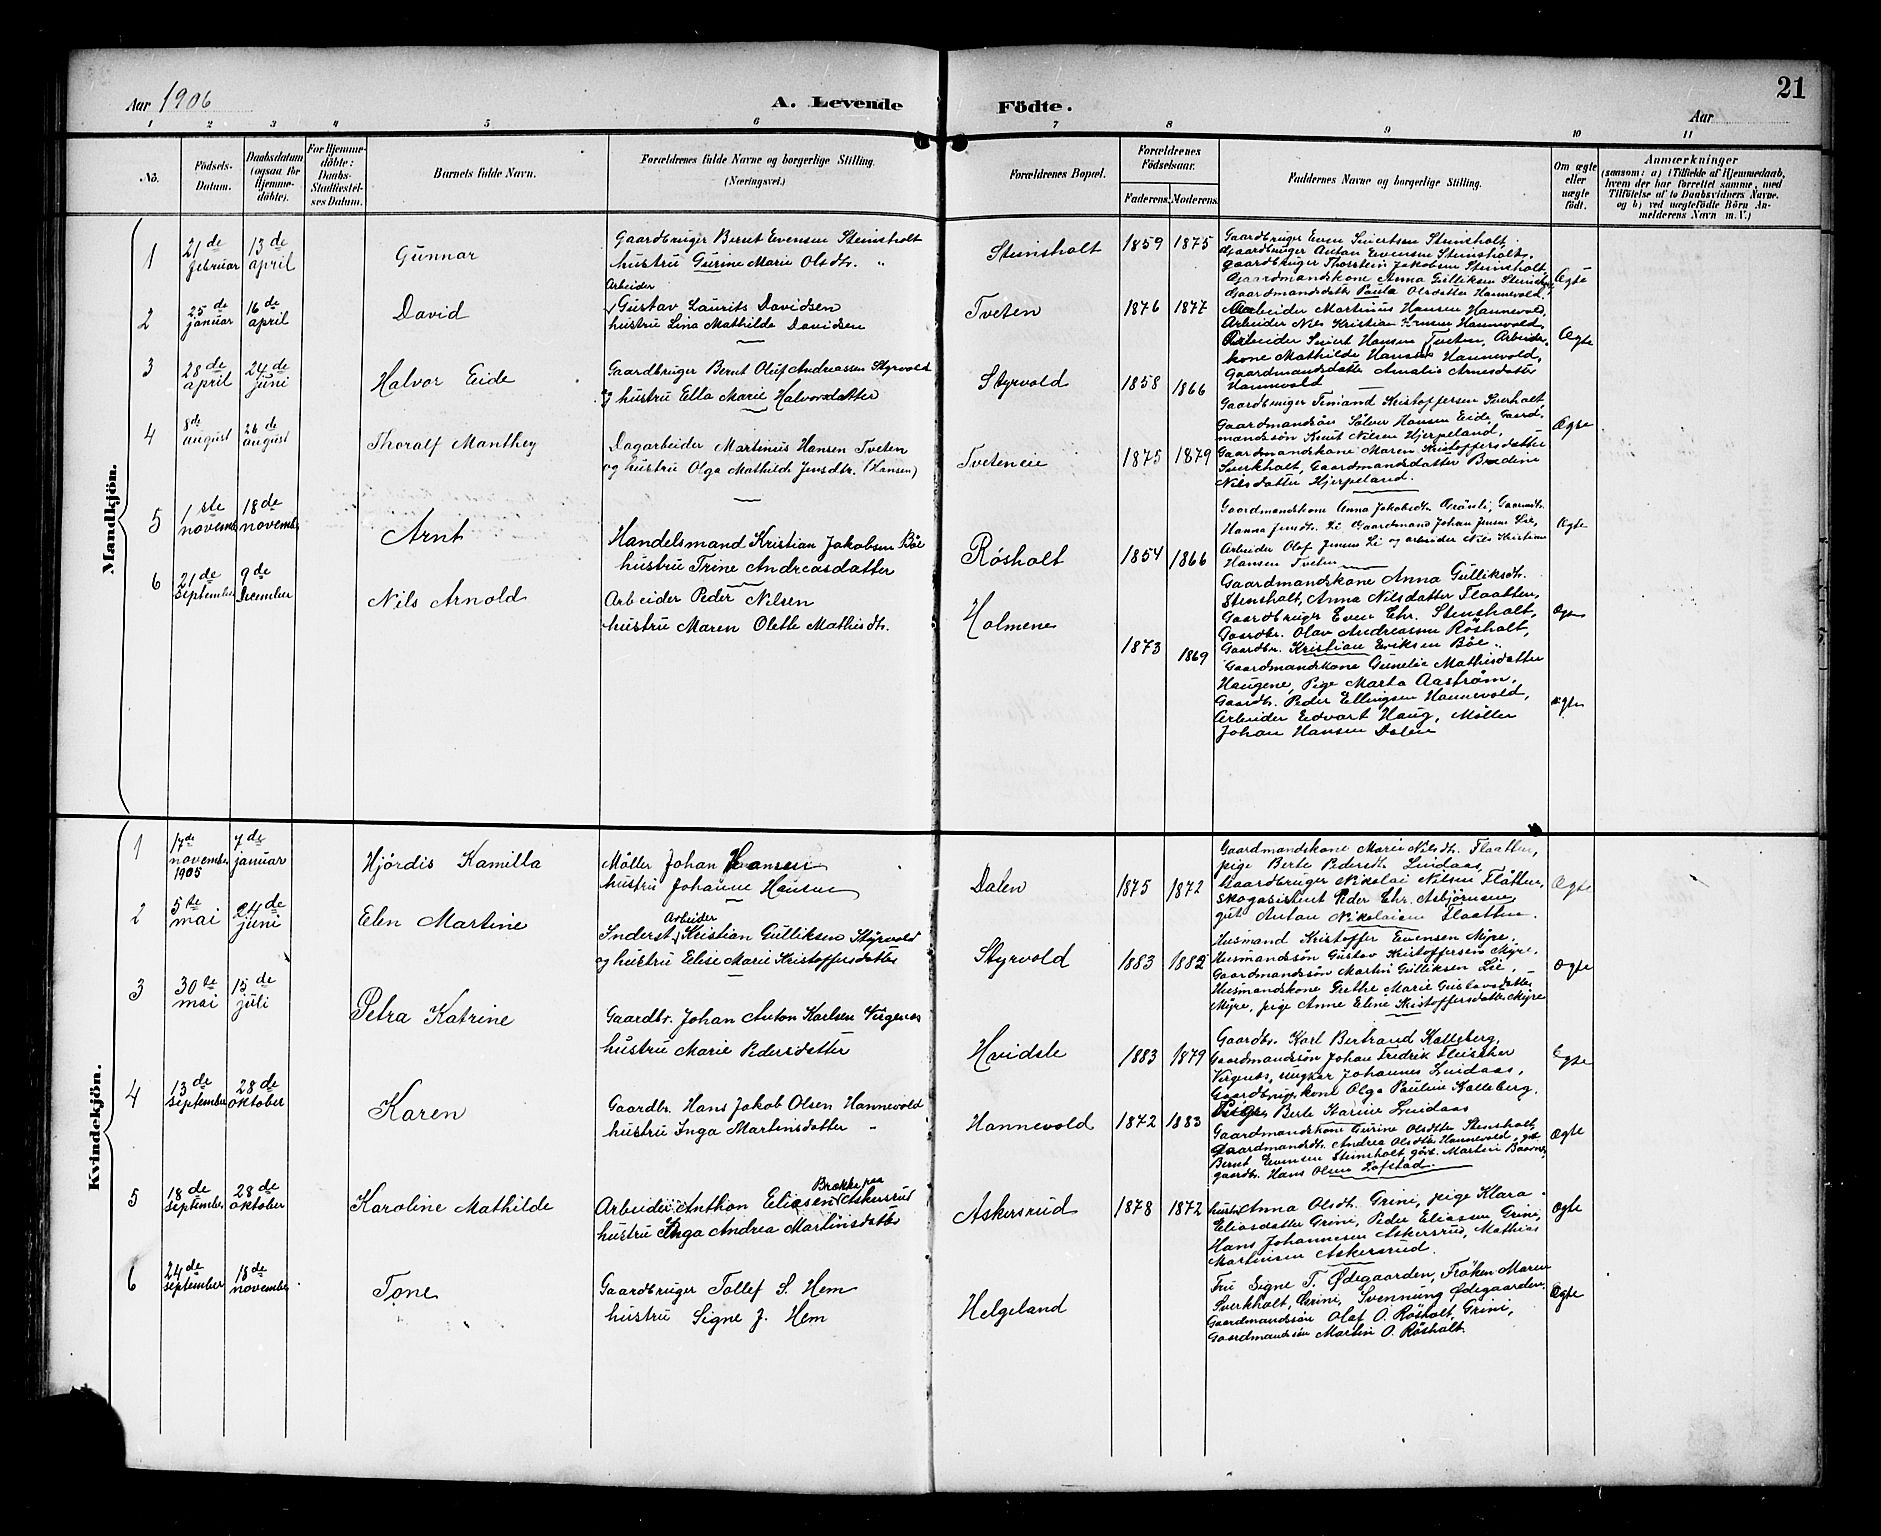 21
Aar 1906
A. Levende Födte.
Aar
1 2 3 4 5 6 7 8 9 10 11
No.
Födsels-Datum.
Daabsdatum (ogsaa for Hjemme-döbte).
For Hjemme-döbte: Daabs-Stadfæstel-ses Datum.
Barnets fulde Navn.
Forældrenes fulde Navne og borgerlige Stilling. (Næringsvei.)
Forældrenes Bopæl.
Forældrenes Födselsaar.
Faderens. Moderens.
Faddernes Navne og borgerlige Stilling.
Om ægte eller uægte födt.
Anmærkninger
(saasom: a) i Tilfælde af Hjemmedaab, hvem der har forrettet samme, med Tilföielse af to Daabsvidners Navne. og b) ved uægtefödte Börn An-melderens Navn m. V.)
Mandkjön.
1 21de februar 13de april Gunnar
Gaardbruger Bernt Evensen Steinsholt
hustru Gurine Marie Olsdtr. "
Steinsholt 1859 1875
Gaardbruger Even Sivertsen Steinsholt,
Gaardbruger Anton Evensen Steinsholt,
Gaardbruger Thorstein Jakobsen Steinsholt,
Gaardmandskone Anna Gulliksen Steinsholt,
Gaardmandsdatter Paula Olsdatter Hannevold,
Ægte
2 25de januar 16de april David
Arbeider
Gustav Laurits Davidsen
hustru Lina Mathilde Davidsen
Tveten 1876 1877
Arbeider Martinus Hansen Hannevold,
Arbeider Nils Kristian Hansen Hannevold,
Arbeider Sivert Hansen Tveten, Arbeider-
kone Mathilde Hansen Hannevold,
Gaardmandsdatter Amalie Arnesdatter
Hannevold
Ægte
3 28de april 24de juni Halvor Eide
Gaardbruger Bernt Oluf Andreassen Styrvold
og hustru Ella Marie Halvorsdatter
Styrvold 1858 1866
Gaardbruger Temand Kristoffersen Sverholt,
Gaardmandsön Sölver Hansen Eide, Gaard-
mandssön Knut Nilsen Hjerpeland,
Gaardmandskone Maren Kristoffersdatter
Sverkholt, Gaardmandsdatter Bredine
Nilsdatter Hjerpeland.
Ægte
4 8de august 26de august Thoralf Manthey
Dagarbeider Martinus Hansen Tveten
og hustru Olga Mathilde Jensdtr. (Hansen)
Tveteneie 1875 1879
Gaardmandskone Anna Jakobsdtr. Grönli, Gaardmdtr.
Hanna Jensdtr. Li Gaardmand Johan Jensen Lie,
Arbeider Olaf Jensen Li og arbeider Nils Kristian
Hansen Tveten
Ægte
5 1ste novemb. 18de novemb. Arnt
Handelsmand Kristian Jakobsen Böe
hustru Trine Andreasdatter
Rösholt 1854 1866
Gaardmandskone Anna Gulliksdtr.
Stensholt, Anna Nilsdatter Flaatten,
Gaardbruger Even Chr. Stensholt,
Gaardbr. Olav Andreassen Rösholt,
Gaardbr. Kristian Eriksen Böe
Ægte
6 21de September 9de December Nils Arnold
Arbeider Peder Nilsen
hustru Maren Olette Mathisdtr.
Holmene 1873 1869
Gaardmandskone Gunelie Mathisdatter
Haugene, Pige Marta Aaström,
Gaardbr. Peder Ellingsen Hannevold,
Arbeider Edvart Haug, Möller
Johan Hansen Dalen
Ægte
Kvindekjön.
1 17de novembr. 1905 7de januar Hjördis Kamilla
Möller Johan Hansen
hustru Johanne Hansen
Dalen 1875 1872
Gaardmandskone Marie Nilsdtr. Flaatten,
pige Berte Pedersdtr. Lindaas,
Gaardbruger Nikolai Nilsen Flåtten,
Skogasistent Peder Chr. Asbjörnsen,
gut Anton Nikolaisen Flaatten.
Ægte
2 5te mai 24de juni Elen Martine
Arbeider
Inderst Kristian Gulliksen Styrvold
og hustru Elise Marie Kristoffersdatter
Styrvold 1883 1882
Husmand Kristoffer Evensen Myre,
Husmandssön Gustav Kristoffersen Myre,
Gaardmandssön Martin Gulliksen Lie,
Husmandskone Grethe Marie Gustavsdatter
Myre, pige Anne Eline Kristoffersdatter Myre
Ægte
3 30te mai 15de juli Petra Katrine
Gaardbr. Johan Anton Karlsen Virgenes
hustru Marie Pedersdatter
Hvidsle 1883 1879
Gaardbr. Karl Bertrand Kalleberg,
Gaardmandssön Johan Fredrik Fleischer
Virgenæs, ungkar Johannes Lindaas,
Gaardbrugerkone Olga Pauline Kalleberg.
Pige Berte Karine Lindaas
Ægte
4 13de September 28de oktober Karen
Gaardbr. Hans Jakob Olsen Hannevold
hustru Inga Martinsdatter "
Hannevold 1872 1883
Gaardmandskone Gurine Olsdtr. Stensholt,
Gaardmandsdtr. Andrea Olsdtr. Hannevold, gbr.
Bernt Evensen Steinsholt, gbr. Martin Baavns,
gaardbr. Hans Olsen Löfstad.
Ægte
5 18de September 28de oktober Karoline Mathilde
Brække paa
Arbeider Anthon Eliasen (Askersrud
hustru Inga Andrea Martinsdatter
Askersrud 1878 1872
hustru Anna Olsdtr. Grini, pige Klara
Eliasdatter Grini, Peder Eliassen Grini,
Hans Johannesen Askersrud, Mathias
Martinsen Askersrud.
Ægte
6 24de September 18de november Tone
Gaardbruger Tollef S. Hem
hustru Signe J. Hem
Helgeland
Fru Signe T. Ødegaarden, Fröken Maren
Sverkholt, Grini, Svenning Ødegaarden,
Gaardmandssön Olaf O. Rösholt, Grini,
Gaardmandsön Martin O. Rösholt.
Ægte